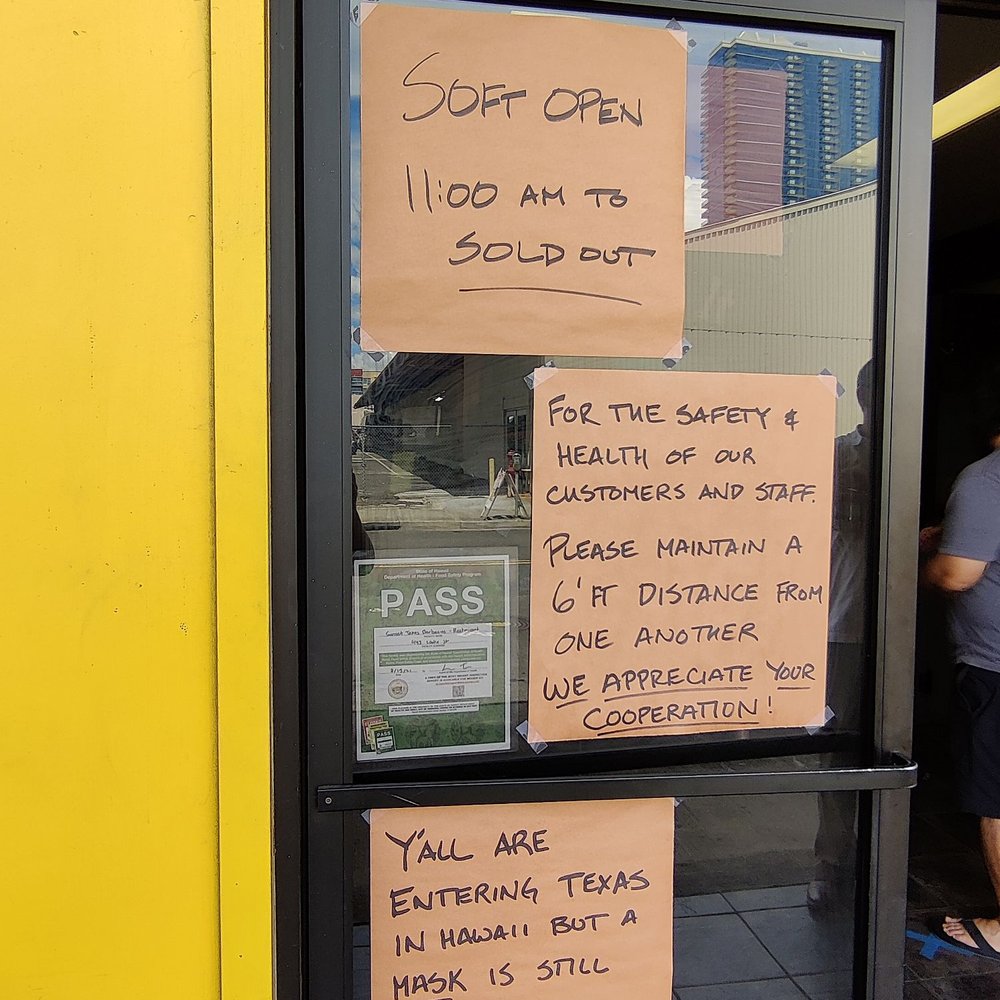 SOFT OPEN
11:00 AM TO
SOLD OUT
FOR THE SAFETY &
HEALTH OF OUR
CUSTOMERS AND STAFF.
PLEASE MAINTAIN A
6' FT DISTANCE FROM
ONE ANOTHER
WE APPRECIATE YOUR
COOPERATION!
State of Hawaii
Department of Health | Food Safety Program
PASS
Sunset Texas Barbecue - Restaurant
PASS
Y'ALL ARE
ENTERING TEXAS
IN HAWAII BUT A
MASK IS STILL